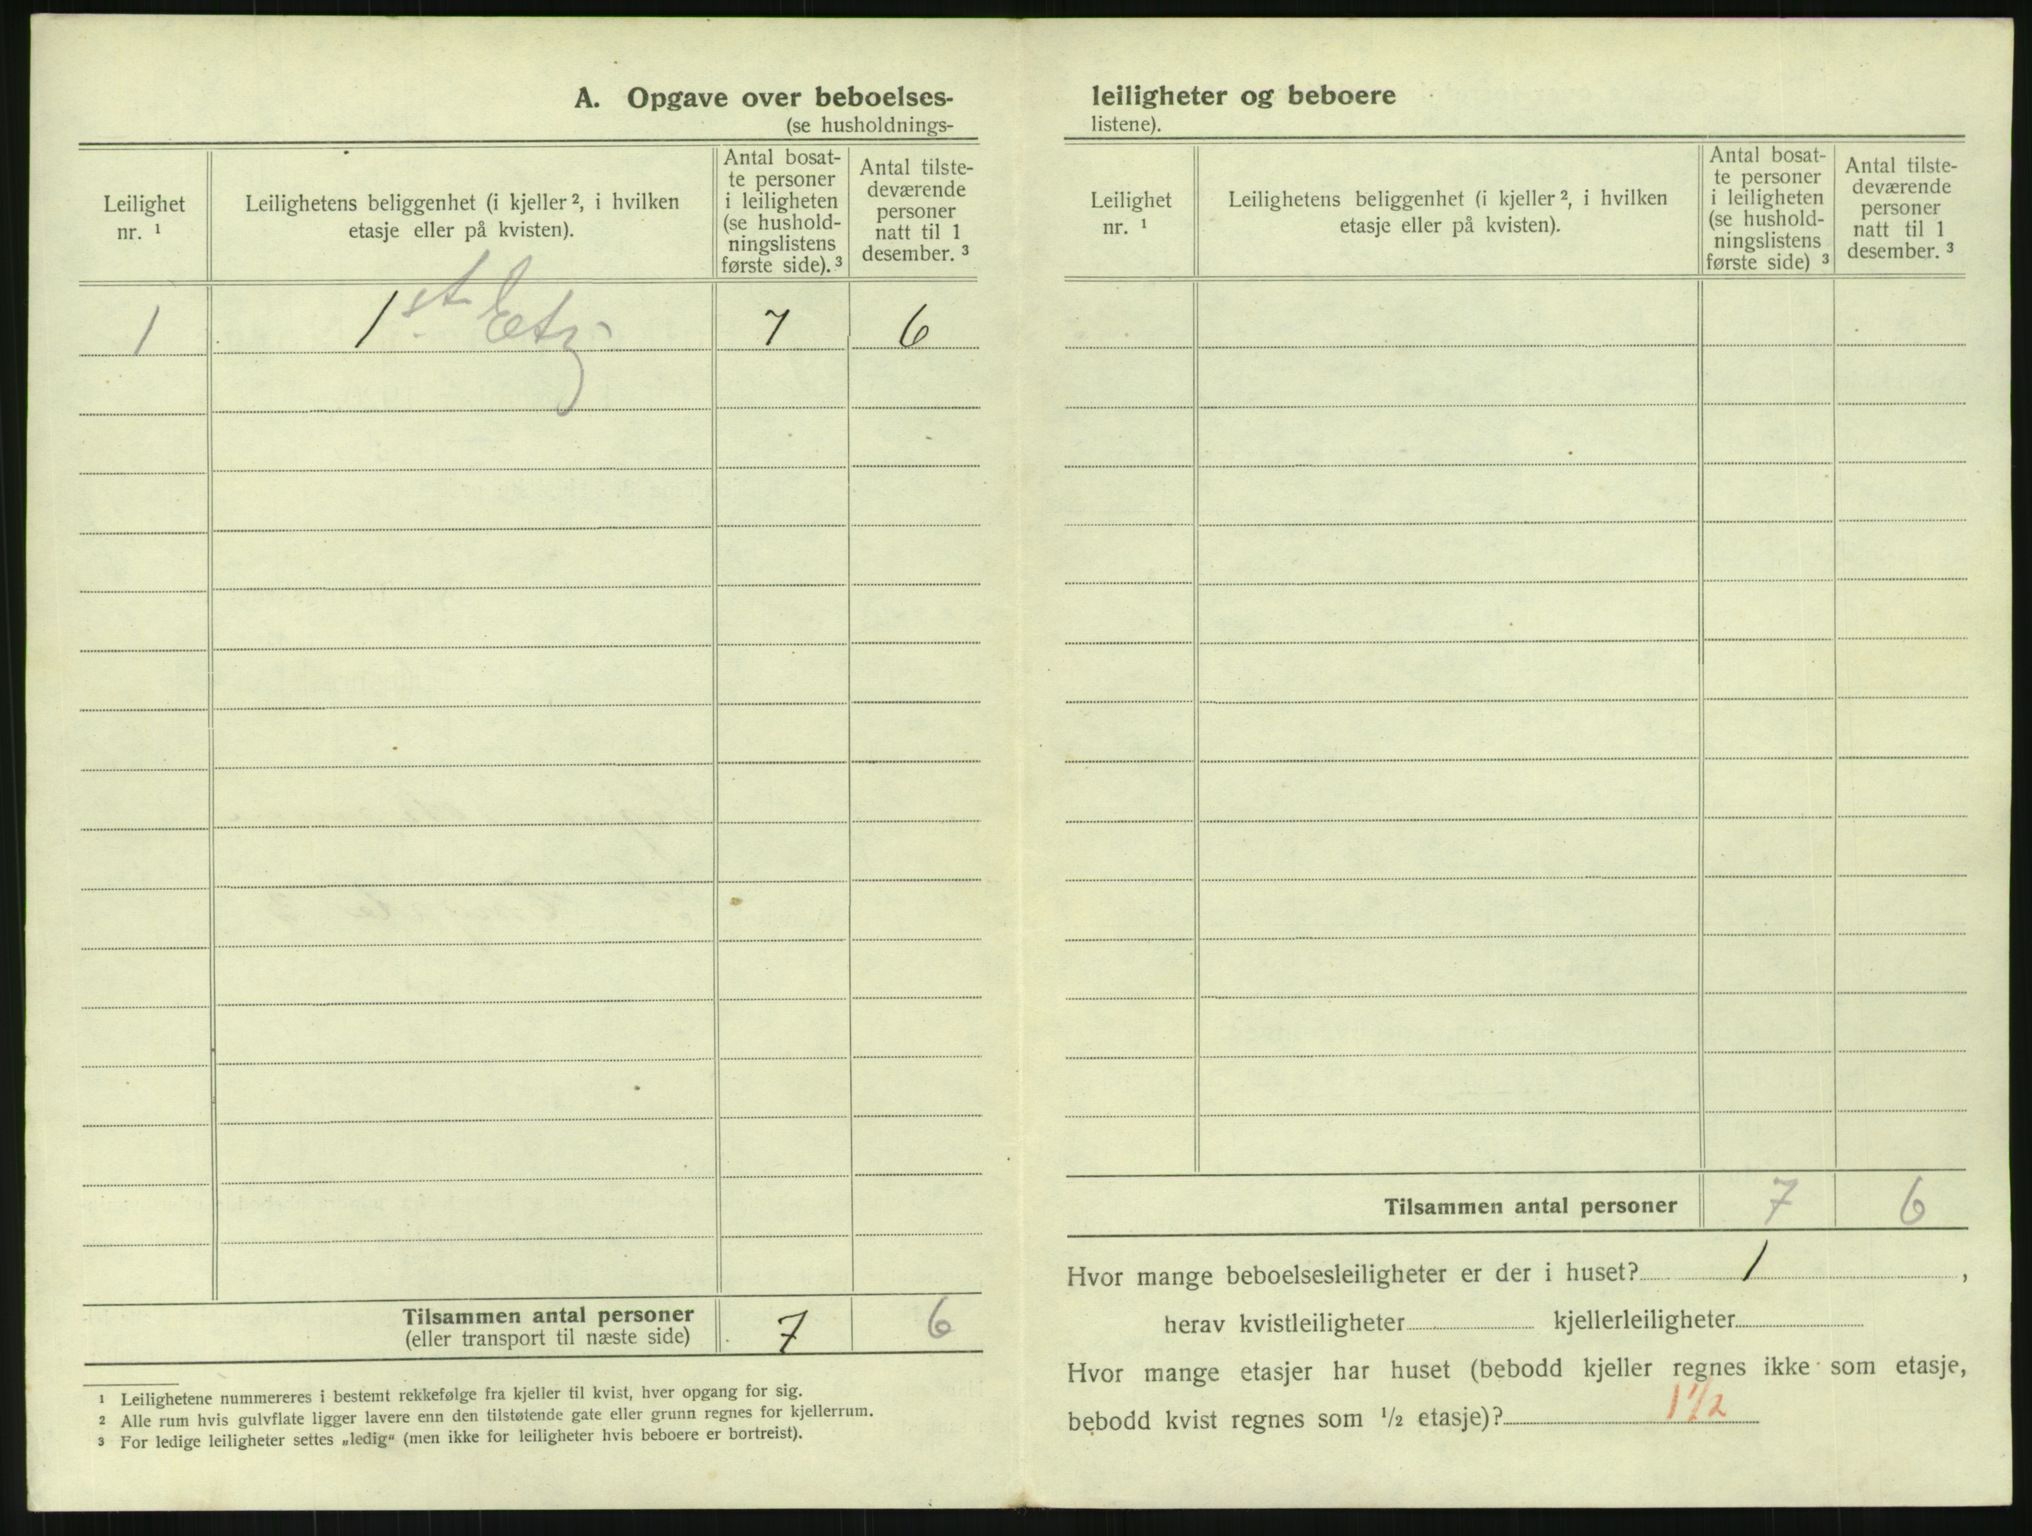 A. Opgave over beboelses-
(se husholdnings-
Leilighet
nr. ¹
Leilighetens beliggenhet (i kjeller ², i hvilken
etasje eller på kvisten).
Antal bosat-
te personer
i leiligheten
(se hushold-
ningslistens
første side). ³
Antal tilste-
deværende
personer
natt til 1
desember. ³
1 1st Etg 7 6
Tilsammen antal personer 7 6
(eller transport til næste side)
¹ Leilighetene nummereres i bestemt rekkefølge fra kjeller til kvist, hver opgang for sig.
² Alle rum hvis gulvflate ligger lavere enn den tilstøtende gate eller grunn regnes for kjellerrum.
³ For ledige leiligheter settes „ledig“ (men ikke for leiligheter hvis beboere er bortreist).
leiligheter og beboere
listene).
Leilighet
nr. ¹
Leilighetens beliggenhet (i kjeller ², i hvilken
etasje eller på kvisten).
Antal bosat-
te personer
i leiligheten
(se hushold-
ningslistens
første side) ³
Antal tilste-
deværende
personer
natt til 1
desember. ³
Tilsammen antal personer 7 6
Hvor mange beboelsesleiligheter er der i huset? 1 ,
herav kvistleiligheter kjellerleiligheter
Hvor mange etasjer har huset (bebodd kjeller regnes ikke som etasje,
bebodd kvist regnes som ½ etasje)? 1½